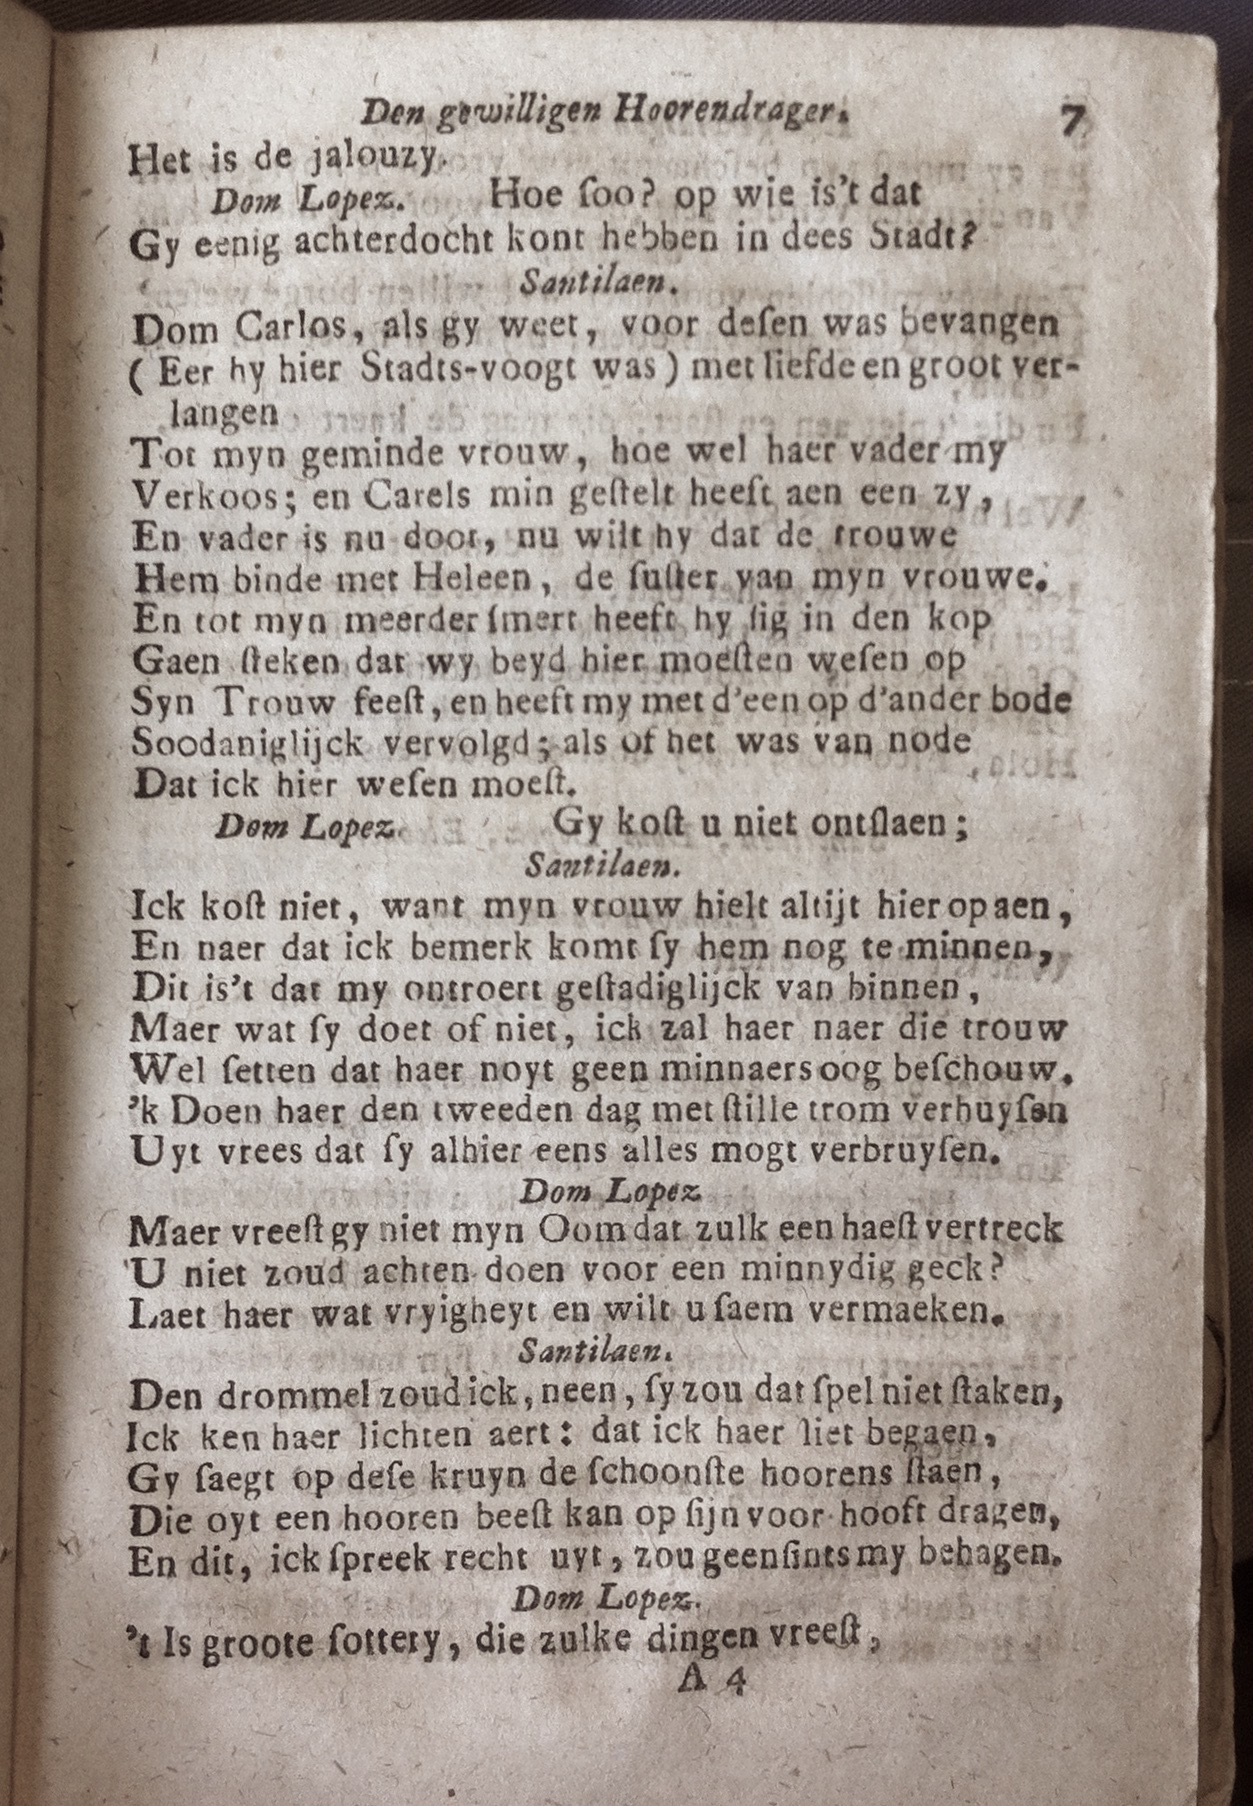 Den gewilligen Hoorendrager. 7
Het is de jalouzy.
Dom Lopez. Hoe ſoo? op wie is't dat
Gy eenig achterdocht kont hebben in dees Stadt?
Santilaen.
Dom Carlos, als gy weet, voor deſen was bevangen
( Eer hy hier Stadts-voogt was ) met liefde en groot ver-
langen
Tot myn geminde vrouw, hoe wel haer vader my
Verkoos; en Carels min geſtelt heeft aen een zy,
En vader is nu doot, nu wilt hy dat de trouwe
Hem binde met Heleen, de ſuſter van myn vrouwe.
En tot myn meerder ſmert heeft hy ſig in den kop
Gaen ſteken dat wy beyd hier moeſten weſen op
Syn Trouw feeſt, en heeft my met d'een op d'ander bode
Soodaniglijck vervolgd; als of het was van node
Dat ick hier weſen moeſt.
Dom Lopez. Gy koſt u niet ontſlaen;
Santilaen.
Ick koſt niet, want myn vrouw hielt altijt hier op aen,
En naer dat ick bemerk komt ſy hem nog te minnen,
Dit is't dat my ontroert geſtadiglijck van binnen,
Maer wat ſy doet of niet, ick zal haer naer die trouw
Wel ſetten dat haer noyt geen minnaers oog beſchouw.
'k Doen haer den tweeden dag met ſtille trom verhuyſen
Uyt vrees dat ſy alhier eens alles mogt verbruyſen.
Dom Lopez
Maer vreeſt gy niet myn Oom dat zulk een haeſt vertreck
U niet zoud achten doen voor een minnydig geck?
Laet haer wat vryigheyt en wilt u ſaem vermaeken.
Santilaen.
Den drommel zoud ick, neen, ſy zou dat ſpel niet ſtaken,
Ick ken haer lichten aert: dat ick haer liet begaen,
Gy ſaegt op deſe kruyn de ſchoonſte hoorens ſtaen,
Die oyt een hooren beeſt kan op ſijn voor hooft dragen,
En dit, ick ſpreek recht uyt, zou geenſints my behagen.
Dom Lopez.
't Is groote ſottery, die zulke dingen vreeſt,
A 4